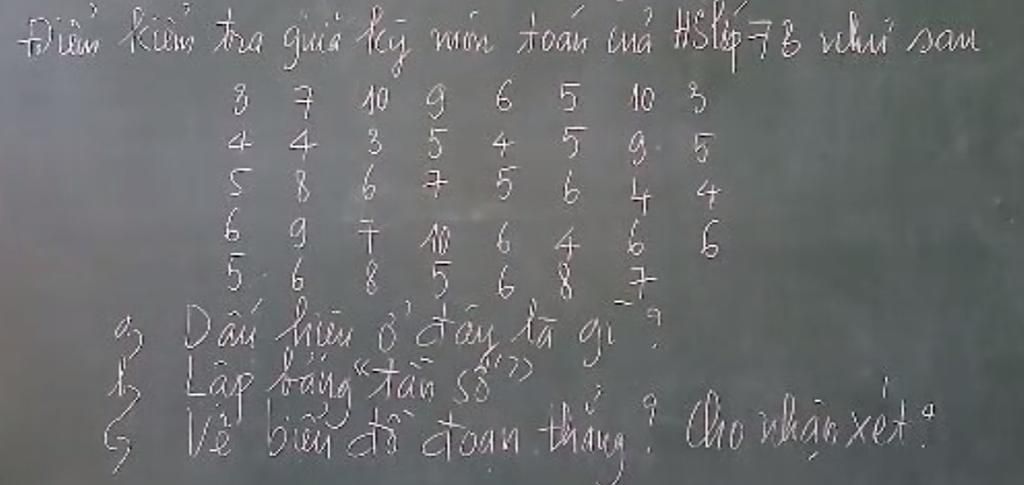 Điểm kiểm tra giữa kỳ môn toán của HS lớp 7B như sau
8 7 10 9 6 5 10 3
4 4 3 5 4 5 9 5
5 8 6 7 5 6 4 4
6 9 7 10 6 4 6 6
5 6 8 5 6 8 7
a, Dấu hiệu ở đây là gì?
b, Lập bảng "tần số"?
c, Vẽ biểu đồ đoạn thẳng? Cho nhận xét?